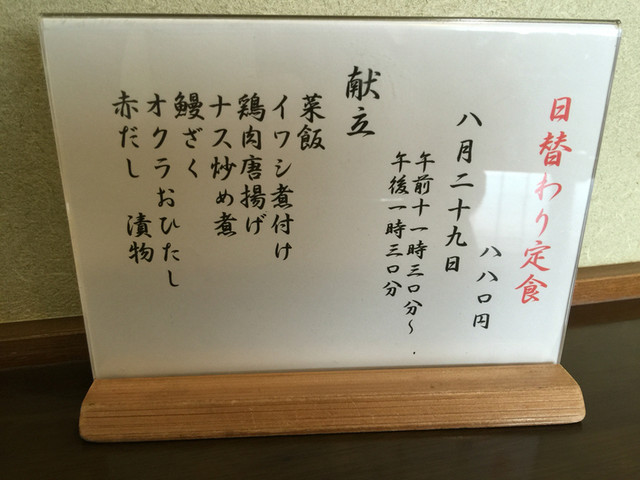 日替わり定食
八八〇円
八月二十九日
午前十一時三〇分～
午後一時三〇分
献立
菜飯
イワシ煮付け
鶏肉唐揚げ
ナス炒め煮
鰻ざく
オクラおひたし
赤だし　漬物